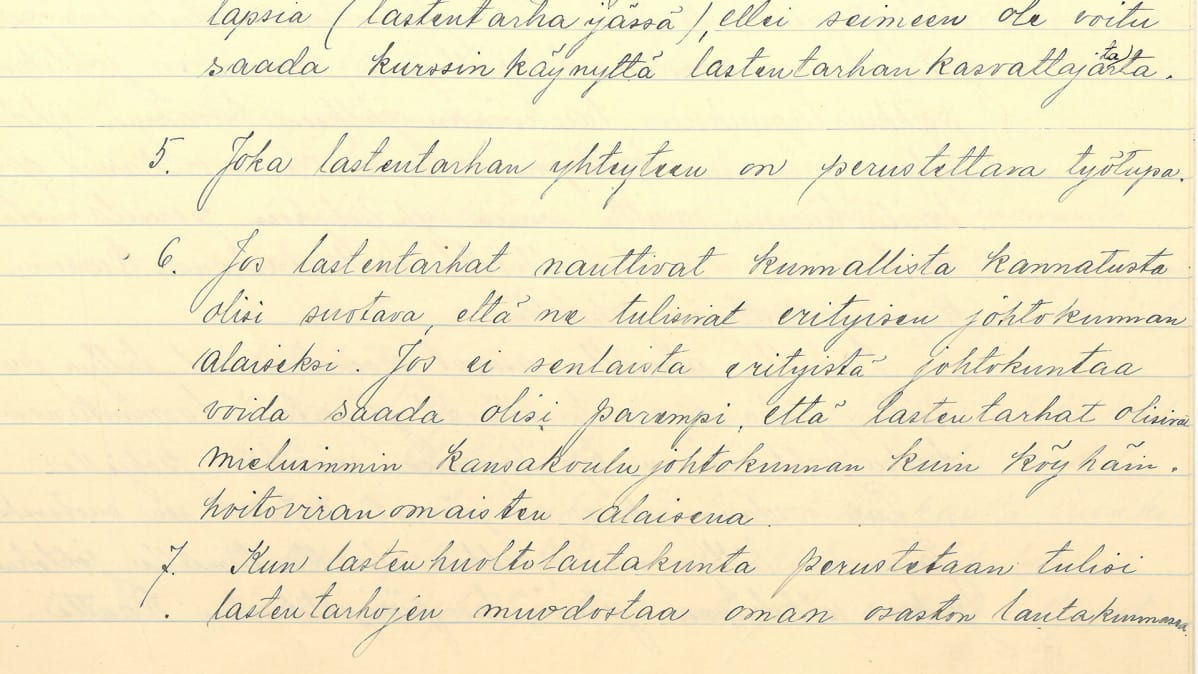 lapsia (lastentarhaijässä), ellei seimeen ole voitu
saada kurssin käynyttä lastentarhan kasvattajatarta.
5. Joka lastentarhan yhteyteen on perustettava työtupa.
6. Jos lastentarhat nauttivat kunnallista kannatusta
olisi suotava, että ne tulisivat erityisen johtokunnan
alaiseksi. Jos ei senlaista erityistä johtokuntaa
voida saada olisi parempi, että lastentarhat olisivat
mieluimmin kansakoulujohtokunnan kuin köyhäin-
hoitoviranomaisten alaisena.
7. Kun lastenhuoltolautakunta perustetaan tulisi
lastentarhojen muodostaa oman osaston lautakunnassa.